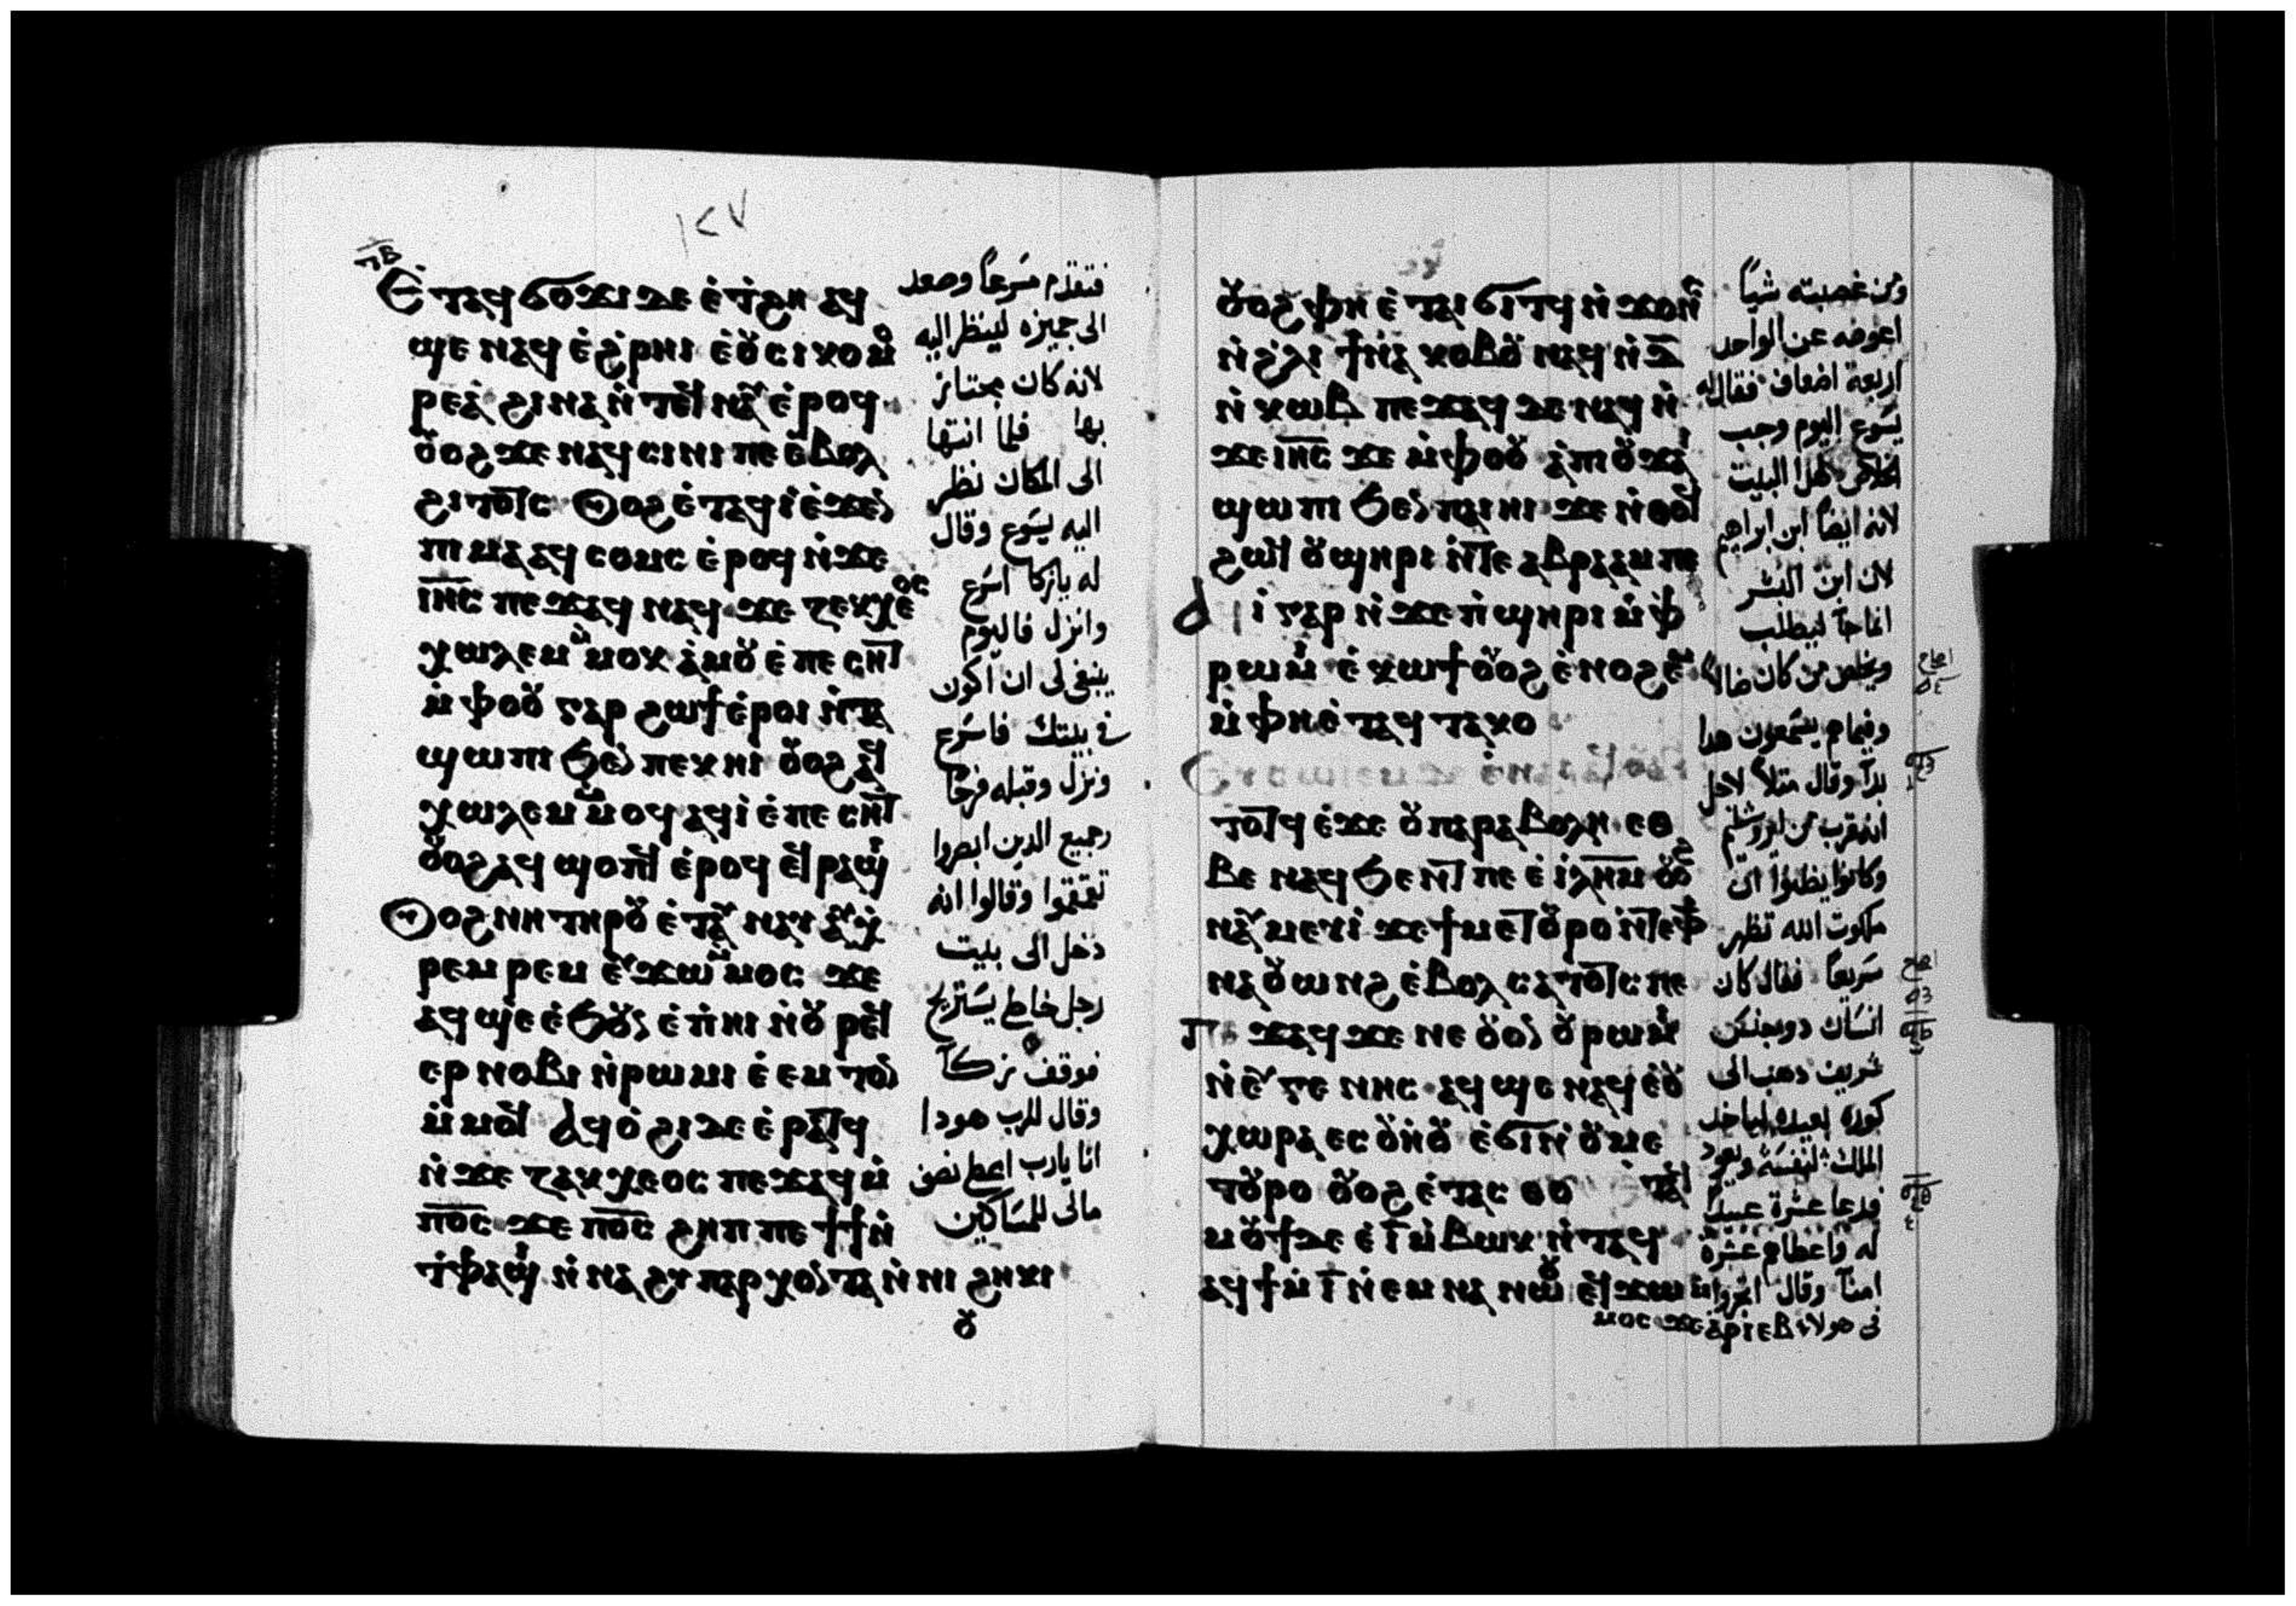 ١٢٧
ⲡⲉ
Ⲉ̇ⲧⲁϥϭⲟϫⲓ ⲇⲉ ⲉ̇ⲧ̇ϩⲏ ⲁϥ
ϣⲉ ⲛⲁϥ ⲉ̇ϩ̇ⲣⲏⲓ ⲉ̇ⲟⲩⲥⲓⲕⲟⲙ
ⲣⲉⲁ̇ ϩⲓⲛⲁ ⲛ̇ⲧⲉϥⲛⲁⲩ ⲉ̇ⲣⲟϥ
ⲟⲩⲟϩ ϫⲉ ⲛⲁϥⲥⲓⲛⲓ ⲡⲉ ⲉ̇ⲃⲟⲗ
ϩⲓⲧⲟⲧⲥ Ⲟⲩⲟϩ ⲉ̇ⲧⲁϥⲓ̇ ⲉ̇ϫⲉⲛ
ⲡⲓⲙⲁ ⲁϥⲥⲟⲙⲥ ⲉ̇ⲣⲟϥ ⲛ̇ϫⲉ
ⲓ̅ⲏ̅ⲥ̅ ⲡⲉϫⲁϥ ⲛⲁϥ ϫⲉ ⲍⲉⲕⲭⲉⲟⲥ
ⲭⲱⲗⲉⲙ ⲙ̇ⲙⲟⲕ ⲁ̇ⲙⲟⲩ ⲉ̇ⲡⲉⲥⲏⲧ
ⲙ̇ⲫⲟⲟⲩ ⲅⲁⲣ ϩⲱϯ ⲉ̇ⲣⲟⲓ ⲛ̇ⲧⲁ
ϣⲱⲡⲓ ϧⲉⲛ ⲡⲉⲕⲏⲓ ⲟⲩⲟϩ ⲁϥ
ⲭⲱⲗⲉⲙ ⲙ̇ⲙⲟϥ ⲁϥⲓ̇ ⲉ̇ⲡⲉⲥⲏⲧ
ⲟⲩⲟϩ ⲁϥϣⲟⲡϥ ⲉ̇ⲣⲟϥ ⲉϥⲣⲁϣⲓ
Ⲟⲩⲟϩ ⲛⲏ ⲧⲏⲣⲟⲩ ⲉ̇ⲧⲁⲩⲛⲁⲩ ⲁⲩⲭ
ⲣⲉⲙⲣⲉⲙ ⲉⲩϫⲱ ⲙ̇ⲙⲟⲥ ϫⲉ
ⲁϥϣⲉ ⲉ̇ϧⲟⲩⲛ ⲉ̇ⲡ̇ⲏⲓ ⲛ̇ⲟⲩⲣⲉϥ
ⲉⲣⲛⲟⲃⲓ ⲛ̇ⲣⲱⲙⲓ ⲉ̇ⲉⲙⲧⲟⲛ
ⲙ̇ⲙⲟϥ Ⲁϥⲟ̇ϩⲓ ⲇⲉ ⲉ̇ⲣⲁⲧϥ
ⲛ̇ϫⲉ ⲍⲁⲕⲭⲉⲟⲥ ⲡⲉϫⲁϥ ⲙ̇
ⲡ̅ⲟ̅ⲥ̅ ϫⲉ ⲡ̅ⲟ̅ⲥ̅ ϩⲏⲡⲡⲉ ϯϯ ⲛ̇
ⲧ̇ⲫⲁϣⲓ ⲛ̇ⲛⲁϩⲩⲡⲁⲣⲭⲟⲛⲧⲁ ⲛ̇ⲛⲓ ϩⲏⲕⲓ
ⲟⲩ
فتقدم مسرعا وصعد
الى جميزه لينظر اليه
لانه كان مجتاز
بها فلما انتها
الى المكان نظر
اليه يسوع وقال
له يازكا اسرع
وانزل فاليوم
ينبغى لى ان اكون
فى بيتك فاسرع
ونزل وقبله فرحا
وجميع الدين ابصروا
تقمقموا وقالوا انه
دخل الى بيت
رجل خاطى يستريح
فوقف زكا
وقال للرب هودا
انا يارب اعطى نصف
مالى للمساكين
ⲟⲩⲟϩ ⲫⲏ ⲉ̇ⲧⲁⲓϭⲓⲧϥ ⲛ̇ϫⲟⲛⲥ
ⲛ̇ϩ̇ⲗⲓ ϯⲛⲁⲕⲟⲃⲟⲩ ⲛⲁϥ ⲛ̇ⲇ̅
ⲛ̇ⲕⲱⲃ ⲡⲉϫⲁϥ ⲇⲉ ⲛⲁϥ ⲛ̇
ϫⲉ ⲓ̅ⲏ̅ⲥ̅ ϫⲉ ⲙ̇ⲫⲟⲟⲩ ⲁ̇ⲡⲓⲟⲩϫⲁⲓ
ϣⲱⲡⲓ ϧⲉⲛ ⲡⲁⲓⲏⲓ ϫⲉ ⲛ̇ⲑⲟϥ
ϩⲱϥ ⲟⲩϣⲏⲣⲓ ⲛ̇ⲧⲉ ⲁⲃⲣⲁⲁⲙ ⲡⲉ
Ⲁϥⲓ̇ ⲅⲁⲣ ⲛ̇ϫⲉ ⲡ̇ϣⲏⲣⲓ ⲙ̇ⲫ̇
ⲣⲱⲙⲓ ⲉ̇ⲕⲱϯ ⲟⲩⲟϩ ⲉ̇ⲛⲟϩⲉⲙ
ⲙ̇ⲫⲏ ⲉ̇ⲧⲁϥⲧⲁⲕⲟ
ⲧⲟⲧϥ ⲉ̇ϫⲉ ⲟⲩⲡⲁⲣⲁⲃⲟⲗⲏ ⲉⲑ
ⲃⲉ ⲛⲁϥϧⲉⲛⲧ ⲡⲉ ⲉ̇ⲓ̅ⲗ̅ⲏ̅ⲙ̅ ⲟⲩⲟϩ
ⲛⲁⲩⲙⲉⲩⲓ̇ ϫⲉ ϯⲙⲉⲧⲟⲩⲣⲟ ⲛ̇ⲧⲉⲫϯ
ⲛⲁⲟⲩⲱⲛϩ ⲉ̇ⲃⲟⲗ ⲥⲁⲧⲟⲧⲥ ⲡⲉ
Ⲡⲉϫⲁϥ ϫⲉ ⲛⲉ ⲟⲩⲟⲛ ⲟⲩⲣⲱⲙⲓ
ⲛ̇ⲉⲩⲅⲉⲛⲏⲥ ⲁϥϣⲉ ⲛⲁϥ ⲉ̇ⲟⲩ
ⲭⲱⲣⲁ ⲉⲥⲟⲩⲏⲟⲩ ⲉ̇ϭⲓ ⲛ̇ⲟⲩⲙⲉ
ⲧⲟⲩⲣⲟ ⲟⲩⲟϩ ⲉ̇ⲧⲁⲥⲑⲟ
ⲙⲟⲩϯ ⲇⲉ ⲉ̇ⲓ̅ ⲙ̇ⲃⲱⲕ ⲛ̇ⲧⲁϥ
ⲁϥϯ ⲙ̇ⲓ̅ ⲛ̇ⲉⲙⲛⲁ ⲛⲱⲟⲩ ⲉϥϫⲱ ⲙ̇
ⲙⲟⲥ ϫⲉ ⲁ̇ⲣⲓⲉⲃ
ومن غصبته شيا
اعوضه عن الواحد
اربعة اضعاف فقال له
يسوع اليوم وجب
الخلاص لهذا البيت
لانه ايضا ابن ابراهيم
لان ابن البشر
انما جا ليطلب
ويخلص من كان ضالا
وفيما هم يسمعون هدا
بدا وقال مثلا لاجل
انه قرب من يروشليم
وكانوا يظنوا ان
ملكوت الله تظهر
سريعا فقال كان
انسان دو جنس
شريف دهب الى
كورة بعيده لياخد
الملك لنفسه ويعود
فدعا عشرة عبيد
له واعطاهم عشرة
امنا وقال اتجروا
فى هولاء